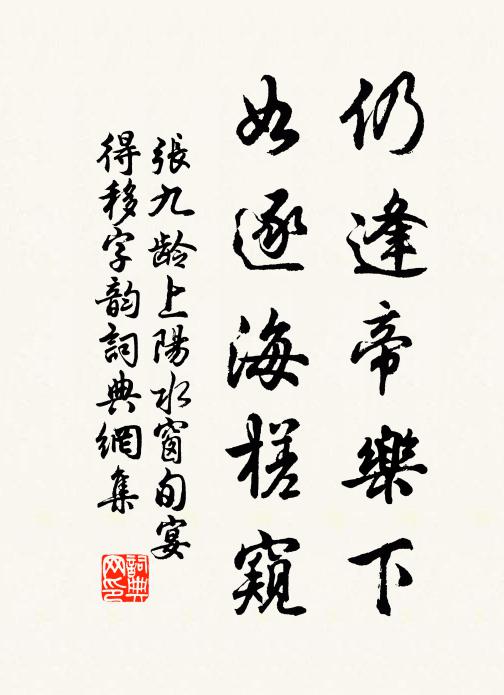 仍逢帝樂下
如逐海槎窺
張九龄上陽水窗旬宴
得移字韵詞典網集
詞典網印